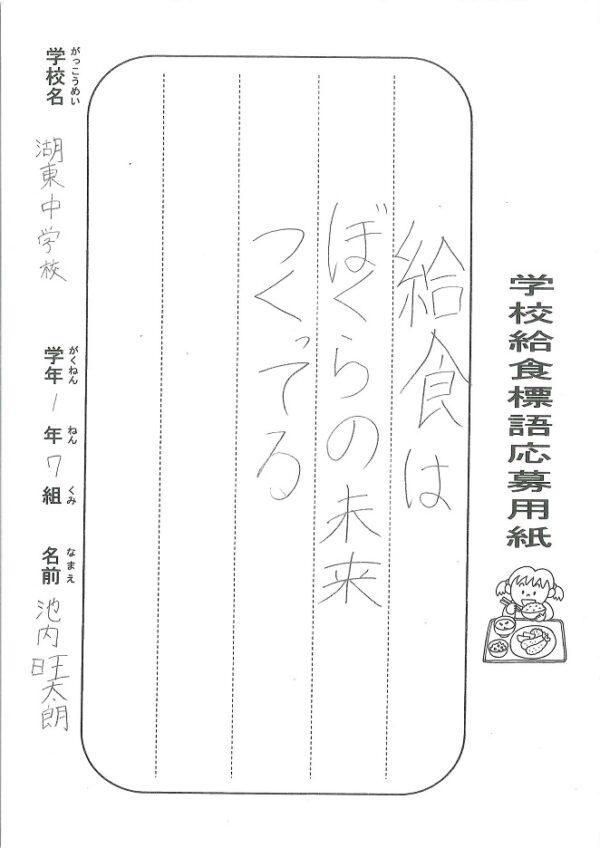 学校給食標語応募用紙
給食は
ぼくらの未来
つくってる
がっこうめい
学校名 湖東中学校
がくねん ねん くみ
学年1年7組
なまえ
名前 池内旺太朗